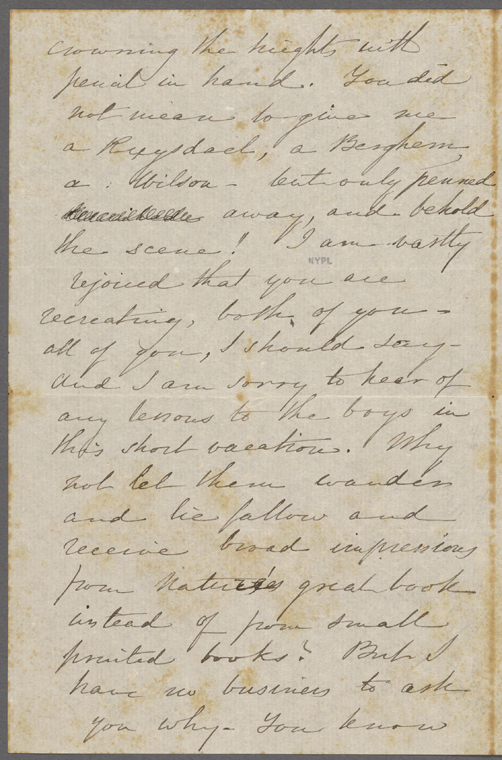 crowning the heights with
pencil in hand. You did
not mean to give me
a Ruysdael, a Berghem,
a Wilson - but only penned
away, and behold
the scene! I am vastly
NYPL
rejoiced that you are
recreating, both of you -
all of you, I should say -
And I am sorry to hear of
any lessons to the boys in
this short vacation. Why
not let them wander
and lie fallow and
receive broad impressions
from Nature's great book
instead of from small
printed books? But I
have no business to ask
you why - You know